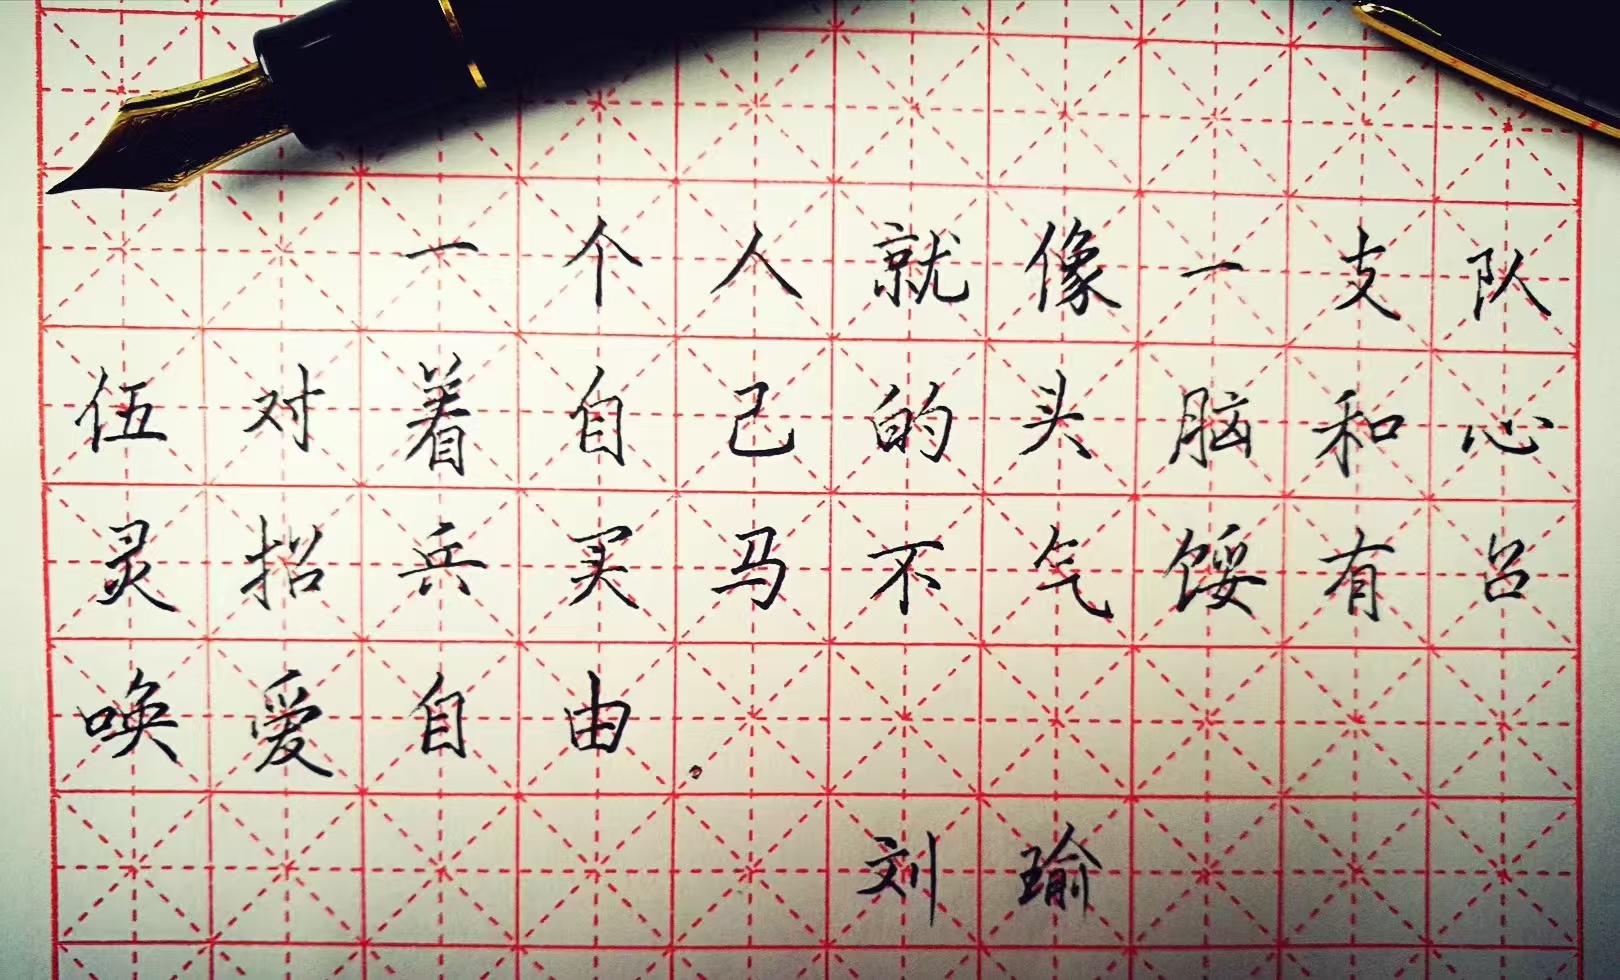 一个人就像一支队
伍对着自己的头脑和心
灵招兵买马不气馁有召
唤爱自由.
刘瑜